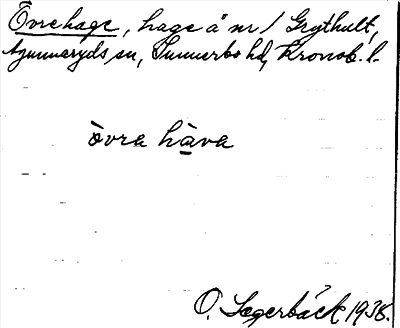 Övrehage, hage å nr 1 Grythult,
Agunnaryds sn, Sunnerbo hd, Kronob. l.
òvra hàva
O. Sagerbäck 1938.